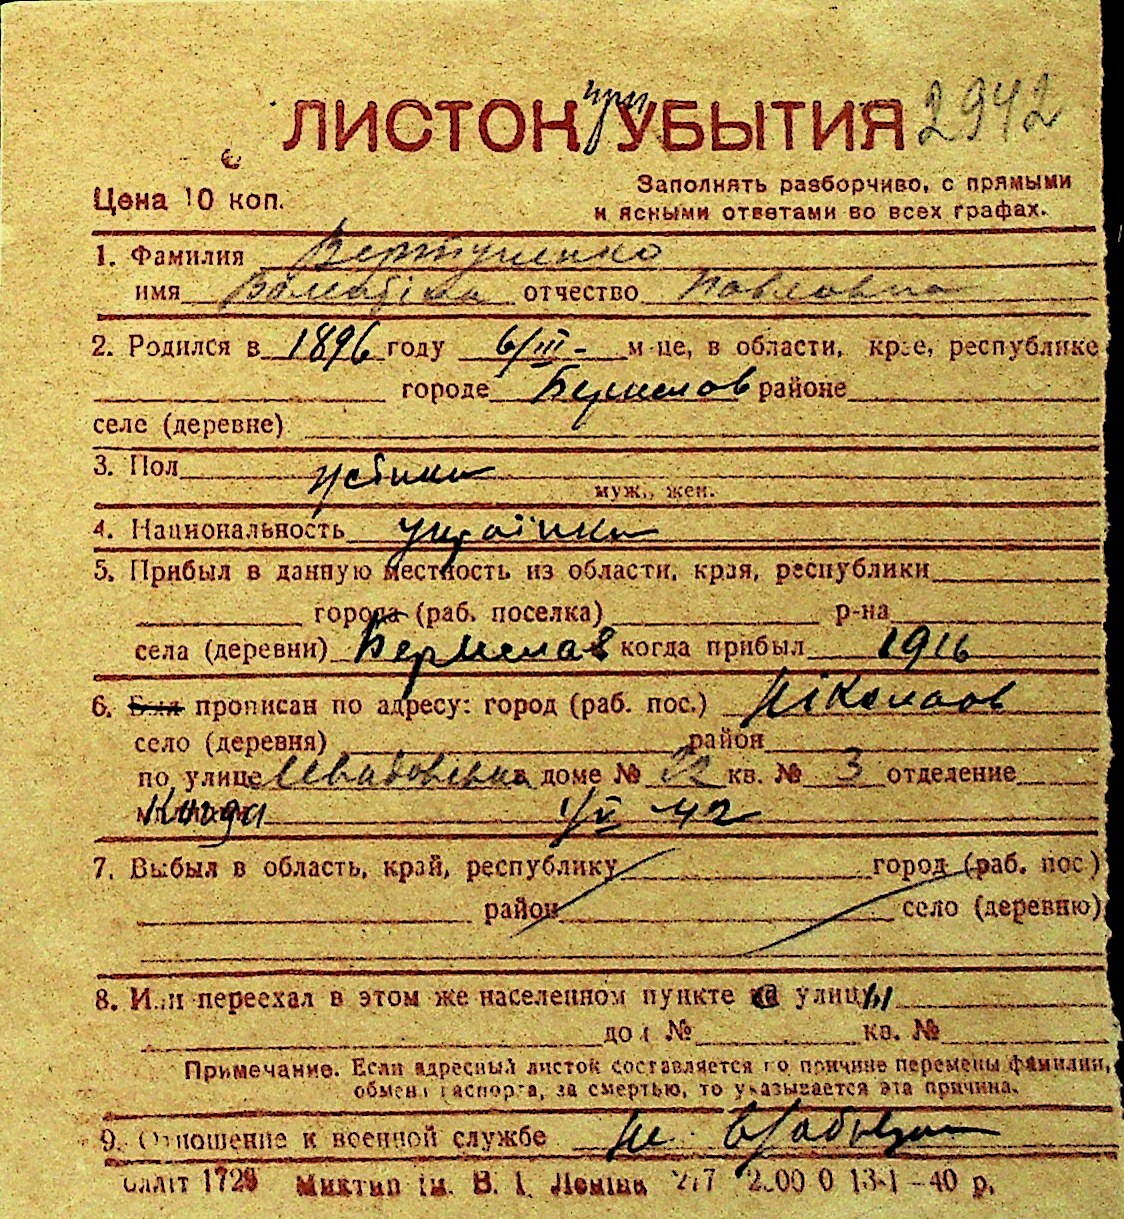 ЛИСТОК при УБЫТИЯ 2942
Цена 10 коп.
Заполнять разборчиво, с прямыми
и ясными ответами во всех графах.
1. Фамилия
имя отчество Павловна
2. Родился в 1896 году 6/III - м-це, в области, крае, республике
городе Берислов районе
селе (деревне)
3. Пол жінка
муж., жен.
4. Национальность українка
5. Прибыл в данную местность из области, края, республики
города (раб. поселка) р-на
села (деревни) Берислав когда прибыл 1916
6. Был прописан по адресу: город (раб. пос.) Ніколаов
село (деревня) район
по улице в доме № 22 кв. № 3 отделение
милиции Когда 1/V 42
7. Выбыл в область, край, республику город (раб. пос.)
район село (деревню)
8. Или переехал в этом же населенном пункте с улицы
дом № кв. №
Примечание. Если адресный листок составляется по причине перемены фамилии,
обмена паспорта, за смертью, то указывается эта причина.
9. Отношение к военной службе не
Облліт 1729 Миктип ім. В. І. Леніна 13-I-40 р.